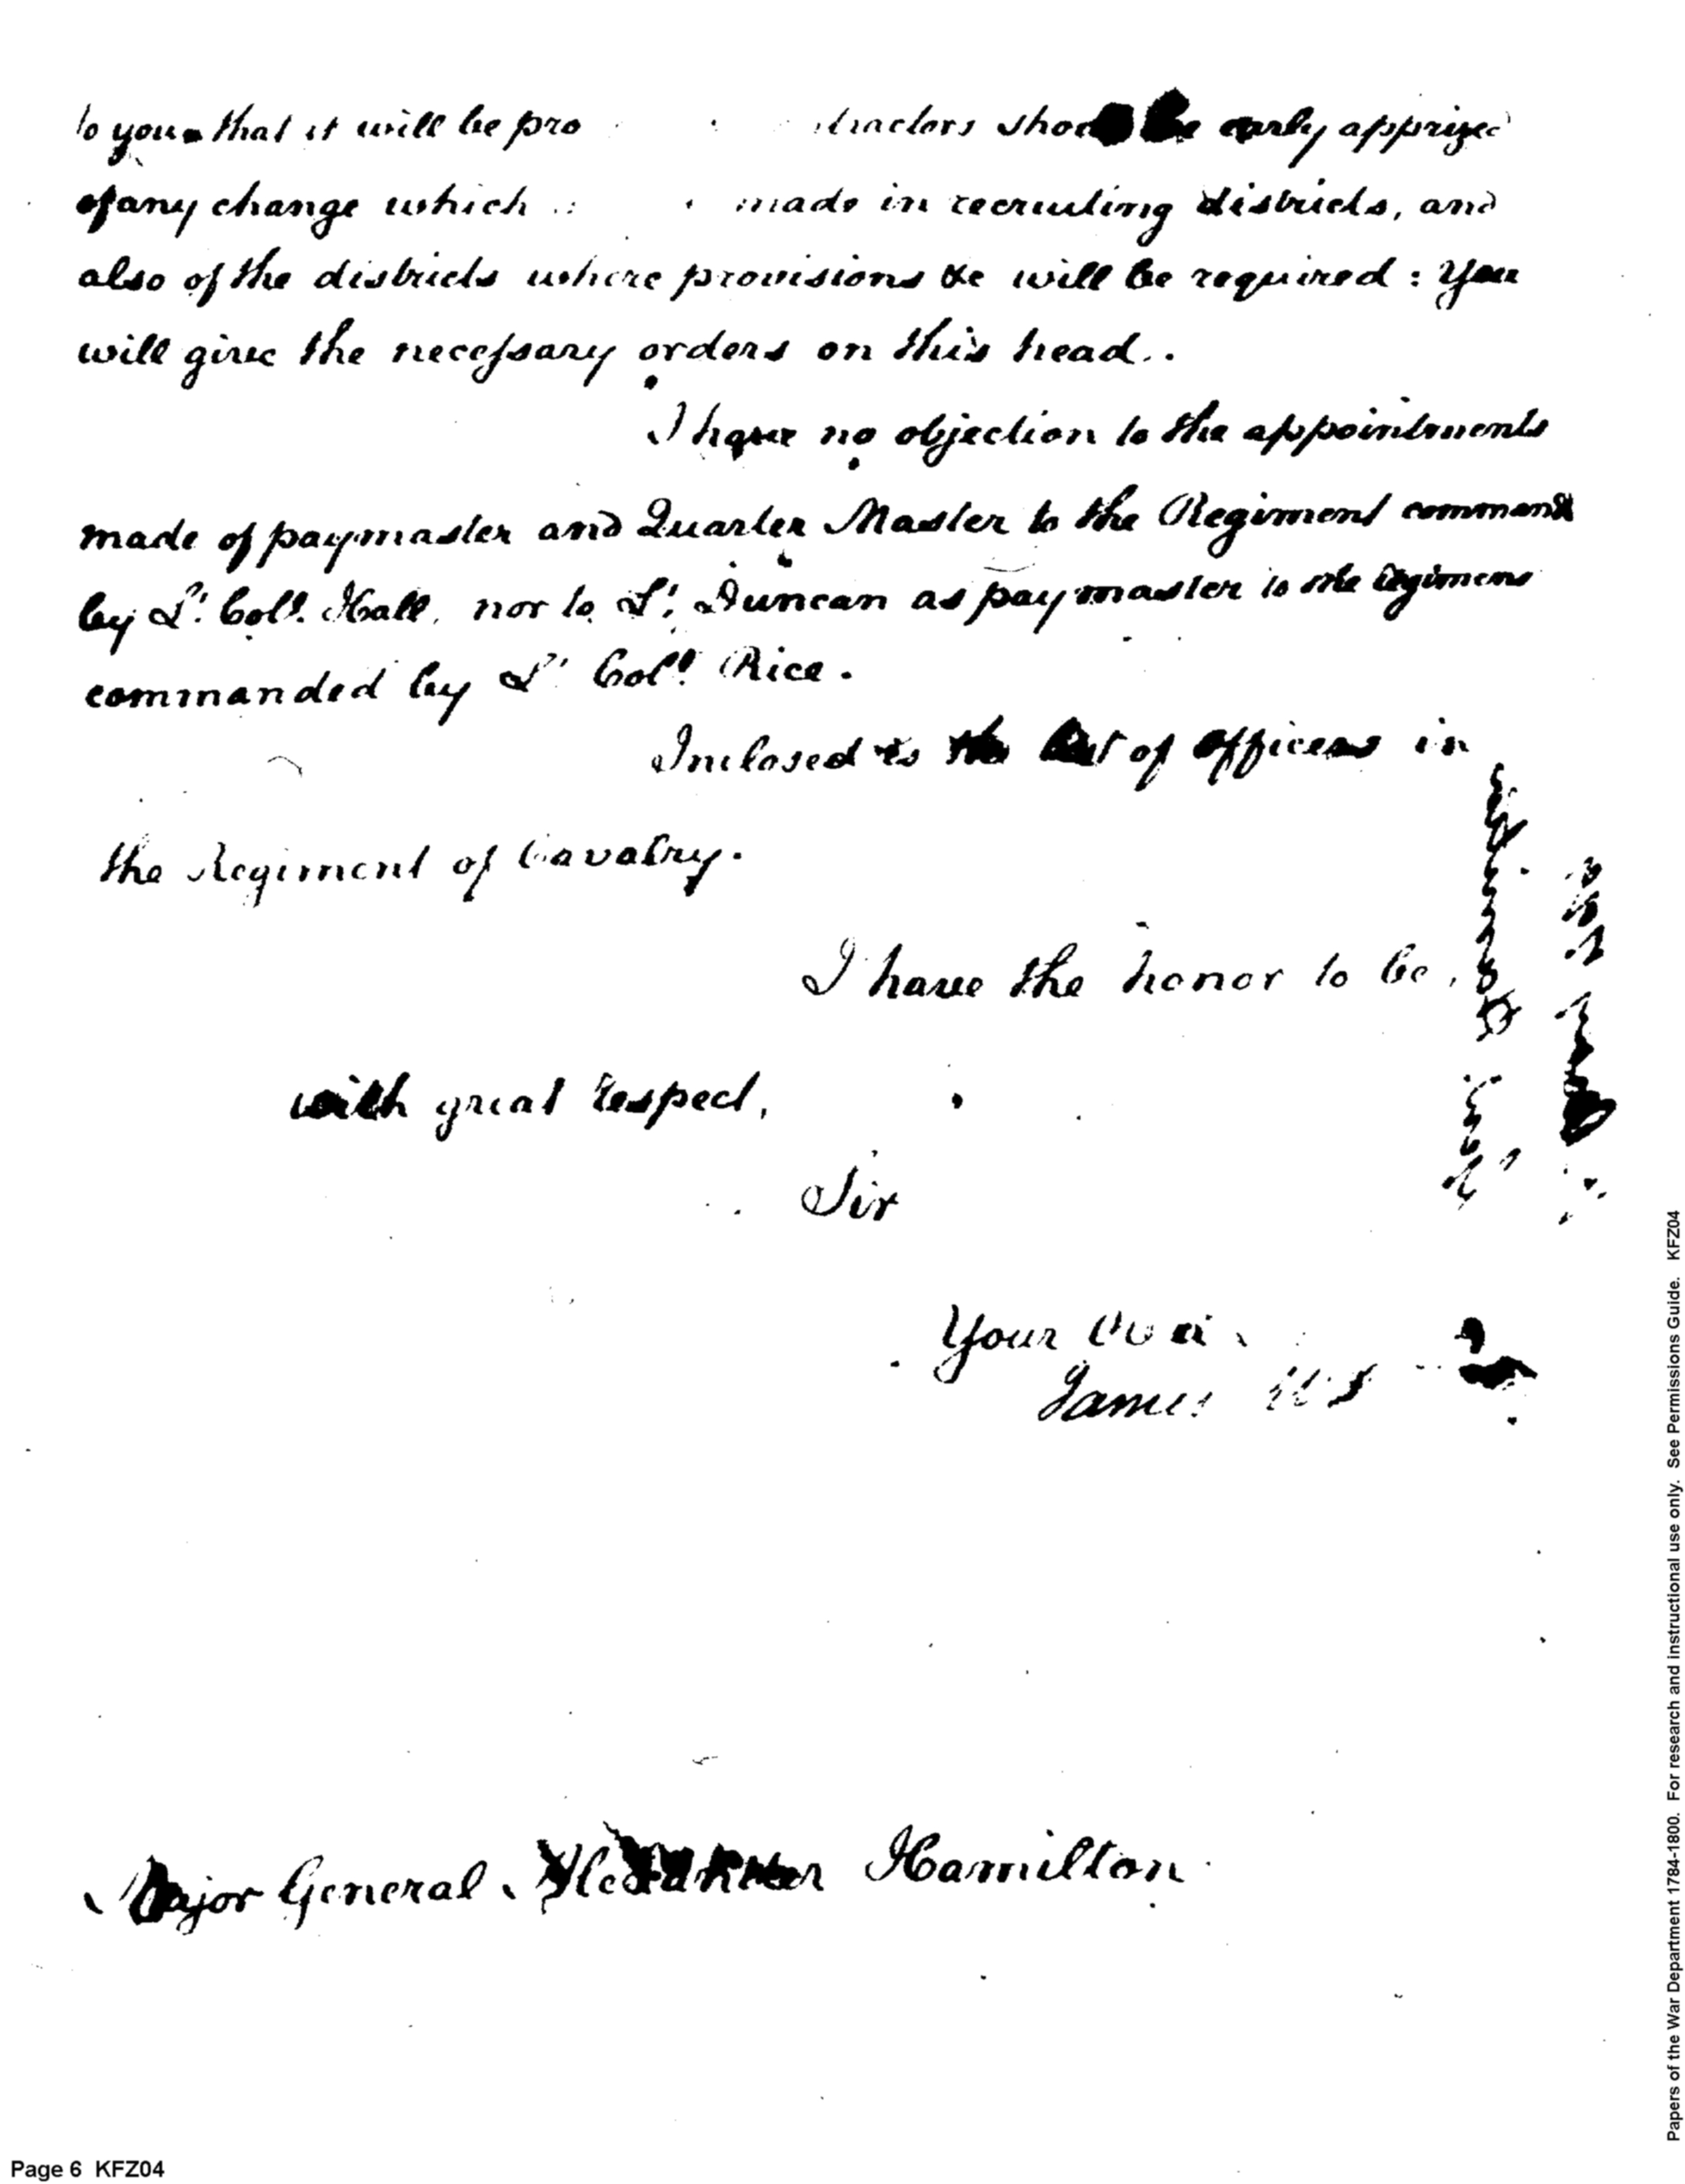 to you that it will be pro tractors should be early apprized
of any change which made in recruiting districts, and
also of the districts where provisions &c will be required: You
will give the necessary orders on this head..
I have no objection to the appointments
made of paymaster and Quarter Master to the Regiment command
by Lt. Coll. Hall, nor to Lt. Duncan as paymaster to the Regiment
commanded by Lt Coll. Rice.
Inclosed is the list of officers in
the Regiment of Cavalry.
I have the honor to be,
with great respect,
Sir
Your
James
Major General Alexander Hamilton
Papers of the War Department 1784-1800. For research and instructional use only. See Permissions Guide. KFZ04
Page 6 KFZ04